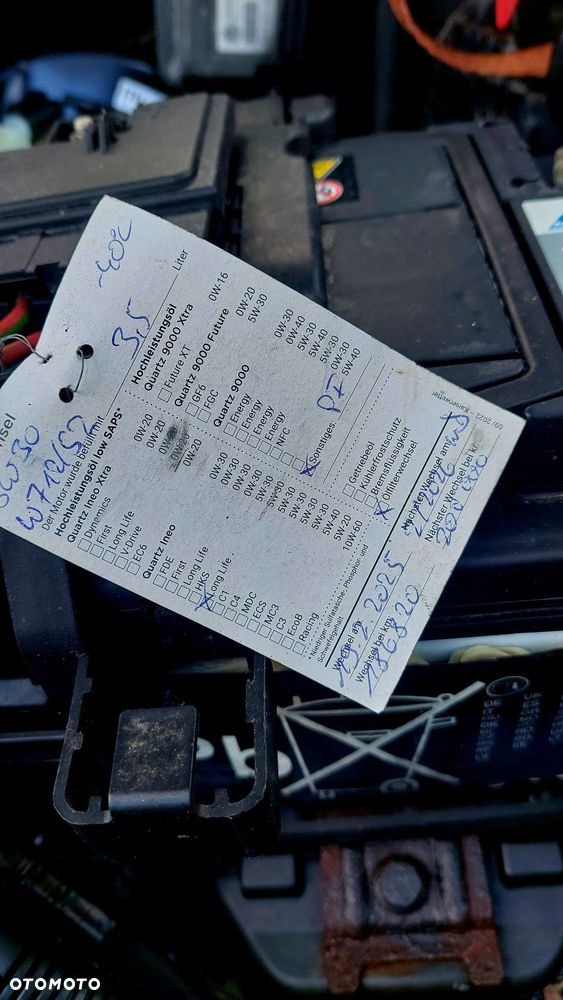 -40c
3,5 Liter
Hochleistungsöl
Quartz 9000 Xtra
Future XT 0W-16
Quartz 9000 Future
GF6 0W-20
FGC 5W-30
Quartz 9000
Energy 0W-30
Energy 0W-40
Energy 5W-30
Energy 5W-40
NFC 5W-30
Sonstiges:
Getriebeöl
Kühlerfrostschutz
Bremsflüssigkeit
X Ölfilterwechsel
09/2022 Kaiserwetter
W712/52
Der Motor wurde befüllt mit
Hochleistungsöl low SAPS*
Quartz Ineo Xtra
Dynamics 0W-20
First
Long Life
V-Drive
EC6 0W-20
Quartz Ineo
FDE 0W-30
First 0W-30
Long Life 0W-30
HKS 5W-30
Long Life
C1 5W-30
C4 5W-30
MDC
ECS 5W-30
MC3
C3 5W-40
EcoB 5W-20
Racing 10W-60
Niedriger Sulfatasche-, Phosphor- und
Schwefelgehalt
Wechsel am
2025
Wechsel bei km
186820
Nächster Wechsel am
2/2026
Nächster Wechsel bei km
200.000
OTOMOTO